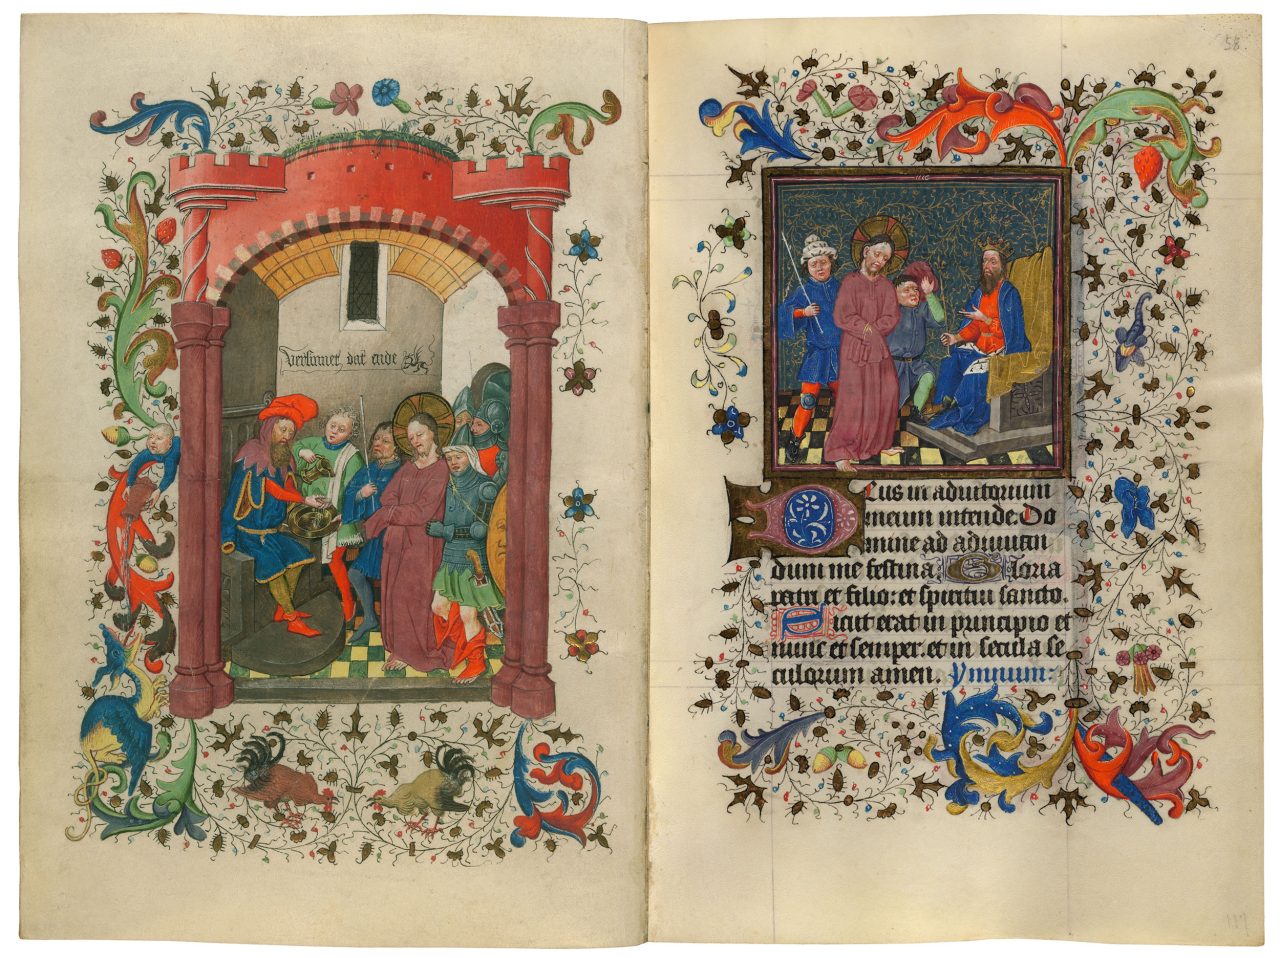 Versinnet dat ende
58
Deus in adiutorium
meum intende. Do
mine ad adiuuan
dum me festina Gloria
patri et filio: et spiritui sancto.
Sicut erat in principio et
nunc et semper. et in secula se
culorum amen. Ymnum: